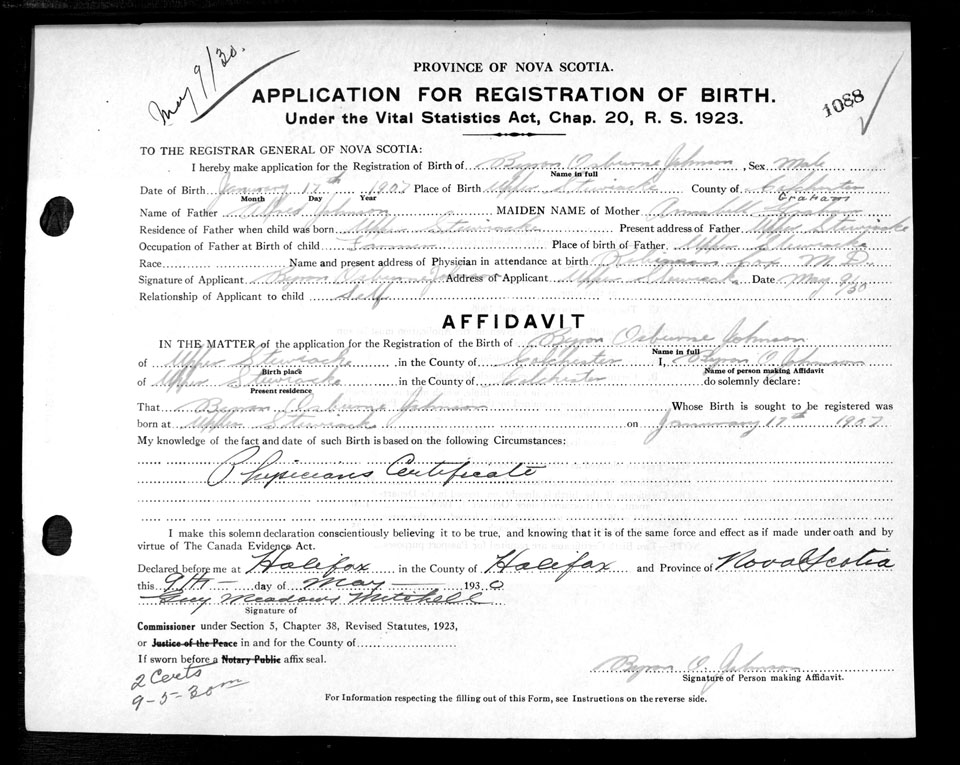 May 9/30.
PROVINCE OF NOVA SCOTIA.
APPLICATION FOR REGISTRATION OF BIRTH.
1088
Under the Vital Statistics Act, Chap. 20, R. S. 1923.
TO THE REGISTRAR GENERAL OF NOVA SCOTIA:
I hereby make application for the Registration of Birth of Byron Osburne Johnson, Sex Male
Name in full
Date of Birth January 17th 1907 Place of Birth Upper Stewiacke County of Colchester
Month Day Year
Graham
Name of Father Alfred Johnson MAIDEN NAME of Mother Annabell Graham
Residence of Father when child was born Upper Stewiacke Present address of Father Upper Stewiacke
Occupation of Father at Birth of child Farmer Place of birth of Father Upper Stewiacke
Race Name and present address of Physician in attendance at birth Robinson Cox M.D.
Signature of Applicant Byron Osburne Johnson Address of Applicant Upper Stewiacke Date May 9/30
Relationship of Applicant to child Self
AFFIDAVIT
IN THE MATTER of the application for the Registration of the Birth of Byron Osburne Johnson
Name in full
of Upper Stewiacke in the County of Colchester I, Byron O. Johnson
Birth place Name of person making Affidavit
of Upper Stewiacke in the County of Colchester do solemnly declare:
Present residence
That Byron Osburne Johnson Whose Birth is sought to be registered was
born at Upper Stewiacke on January 17th 1907
My knowledge of the fact and date of such Birth is based on the following Circumstances:
Physicians Certificate
I make this solemn declaration conscientiously believing it to be true, and knowing that it is of the same force and effect as if made under oath and by
virtue of The Canada Evidence Act.
Declared before me at Halifax in the County of Halifax and Province of Nova Scotia
this 9th day of May 1930
Guy Meadows Mitchell
Signature of
Commissioner under Section 5, Chapter 38, Revised Statutes, 1923,
or Justice of the Peace in and for the County of
If sworn before a Notary Public affix seal.
2 Certs
9-5-30
Byron O. Johnson
Signature of Person making Affidavit.
For Information respecting the filling out of this Form, see Instructions on the reverse side.